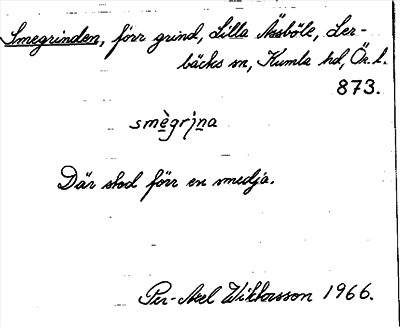 Smegrinden, förr grind, Lilla Åsböle, Ler-
bäcks sn, Kumla hd, Ör. l.
873.
smègrina
Där stod förr en smedja.
Per-Axel Wiktorsson 1966.